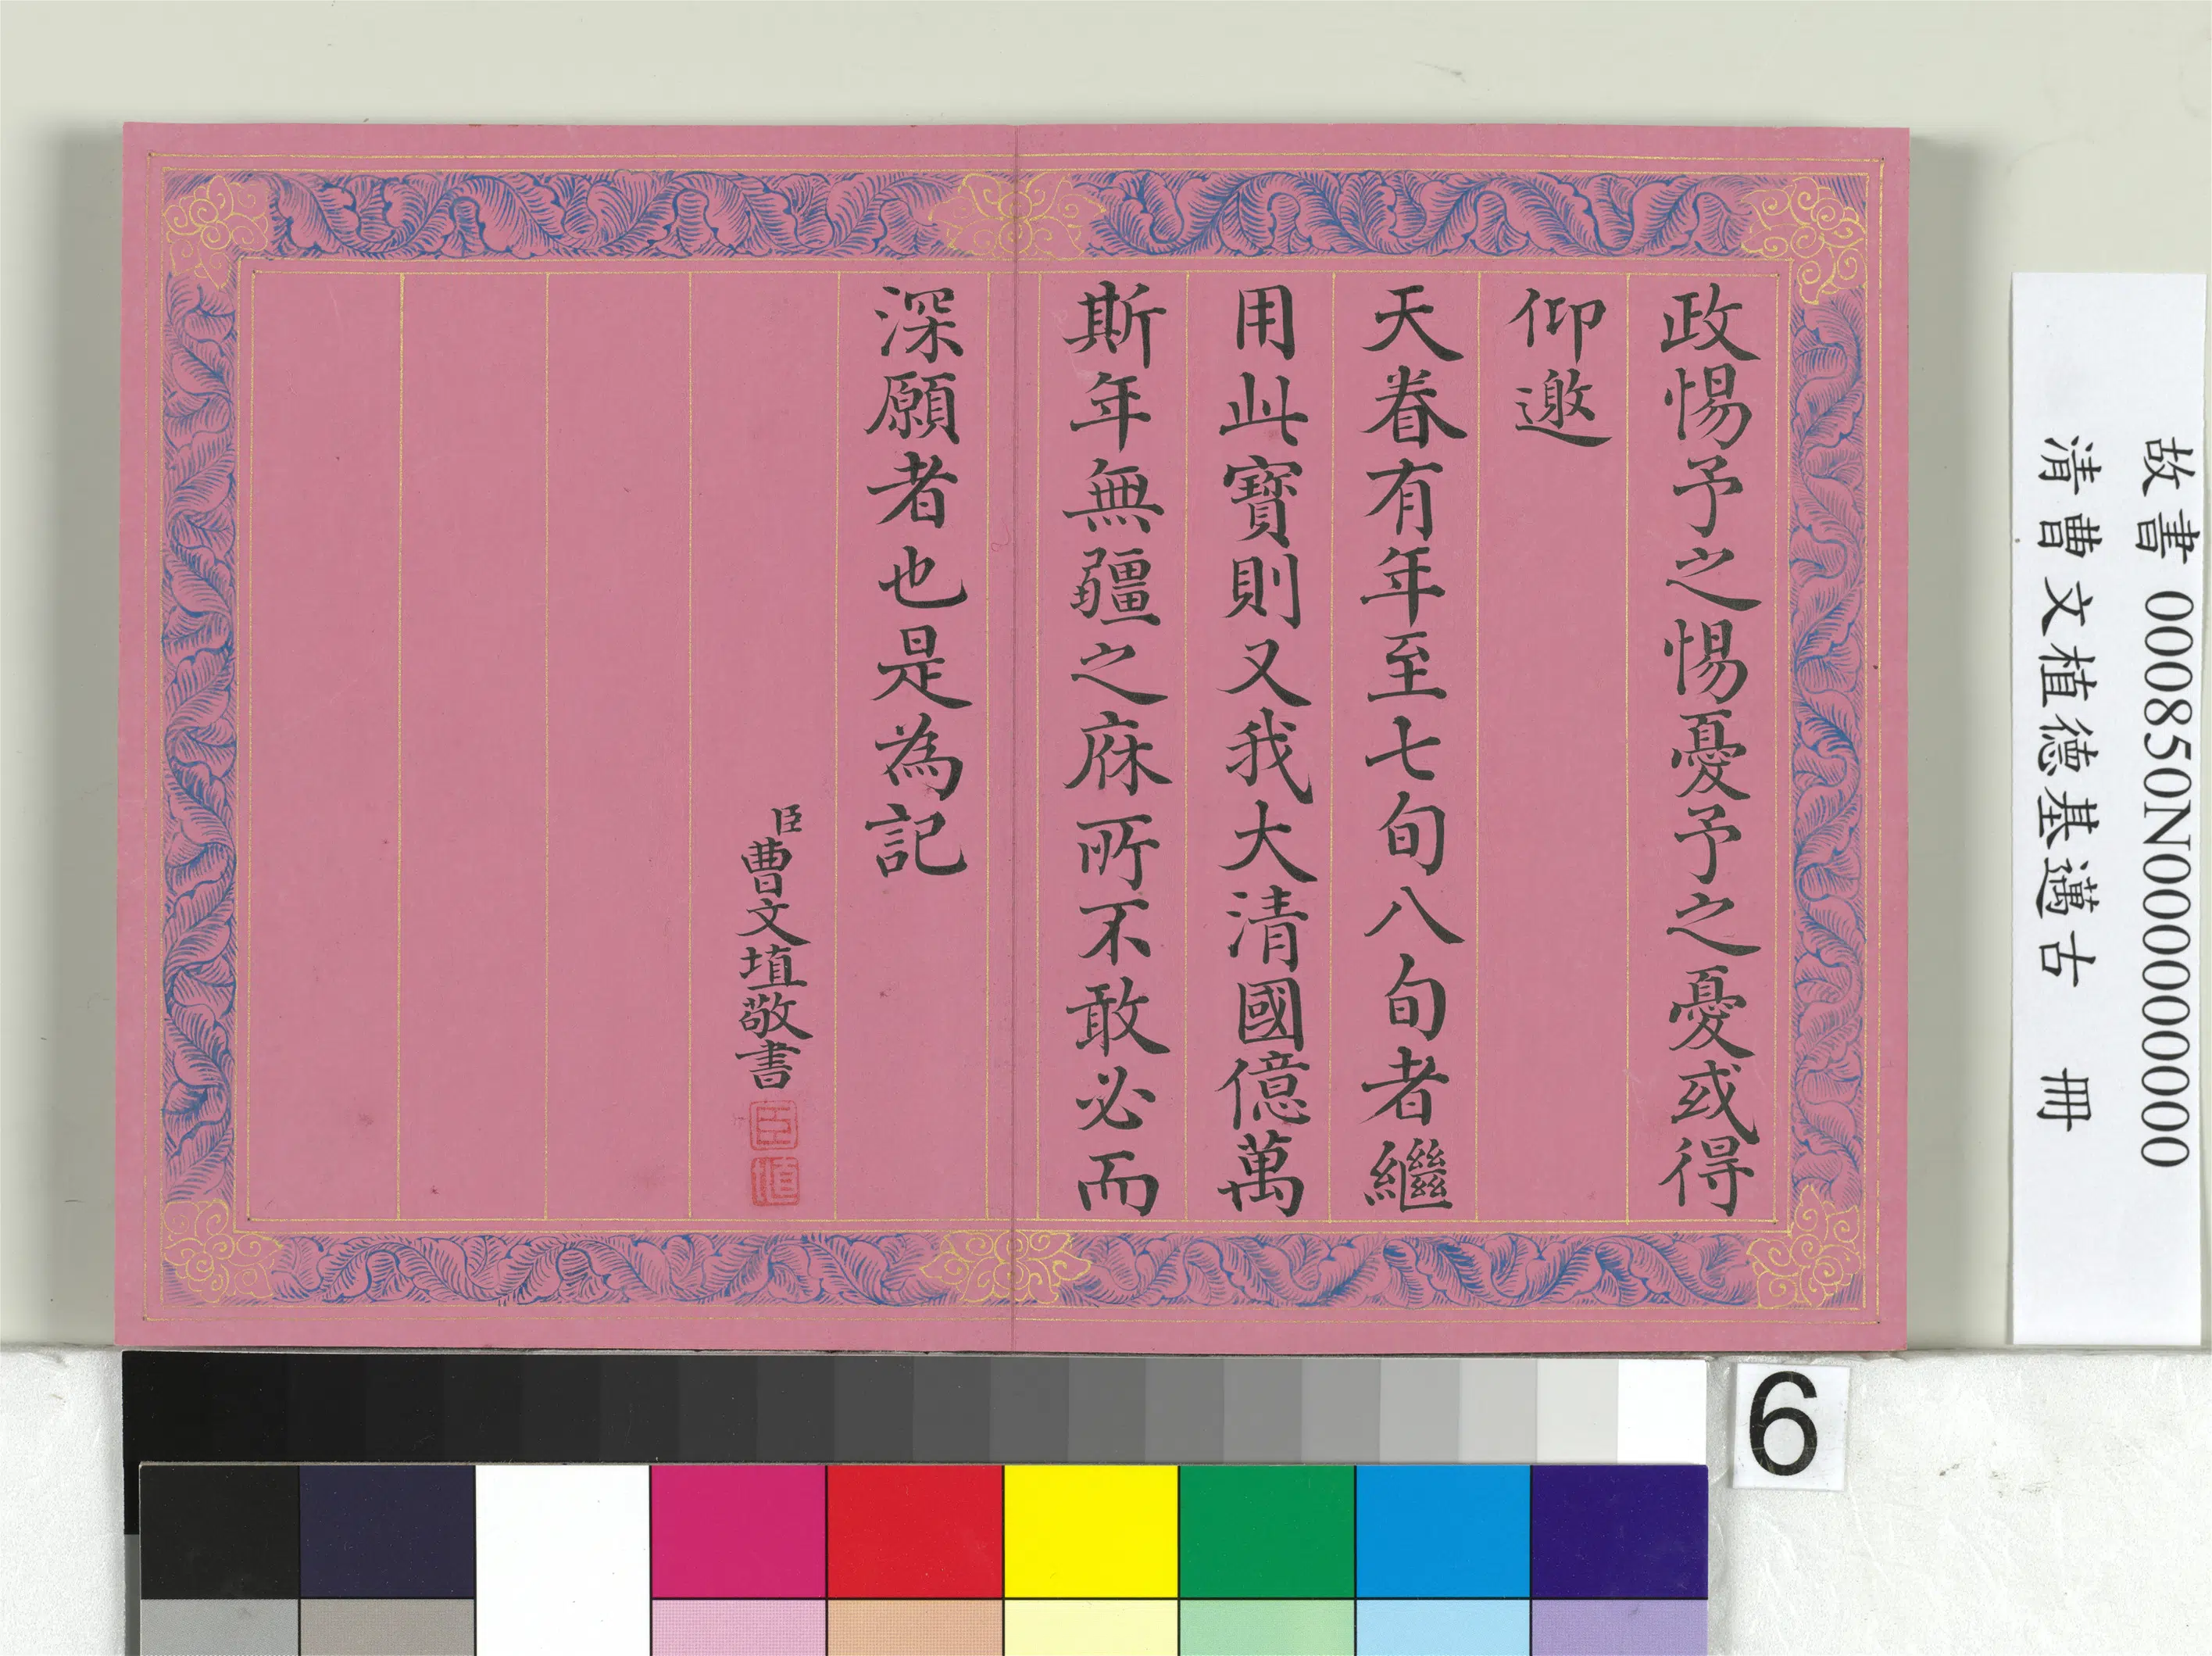 政惕予之惕憂予之憂或得
仰邀
天眷有年至七旬八旬者繼
用此寶則又我大清國億萬
斯年無疆之庥所不敢必而
深願者也是為記
臣曹文埴敬書
臣
埴
故書 000850N000000000
清曹文植德基邁古 冊
6